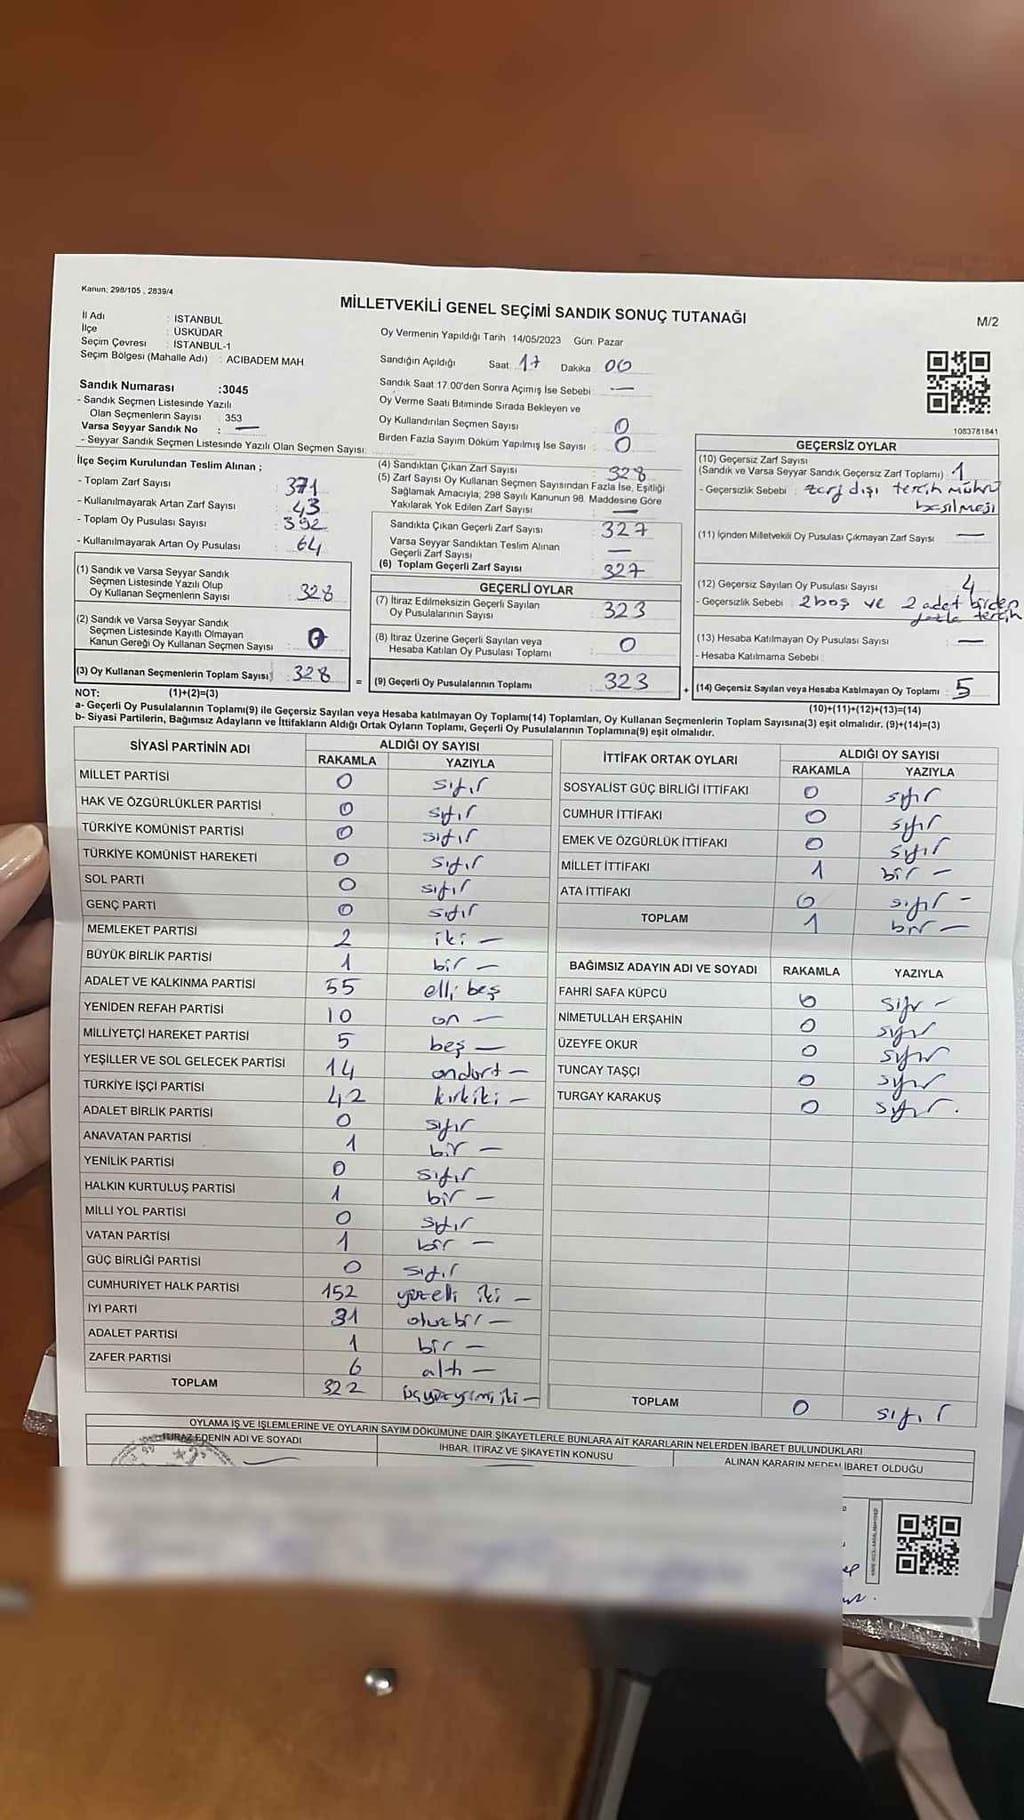 Kanun: 298/105 , 2839/4
MİLLETVEKİLİ GENEL SEÇİMİ SANDIK SONUÇ TUTANAĞI
M/2
İl Adı : İSTANBUL
İlçe : ÜSKÜDAR
Seçim Çevresi : İSTANBUL-1
Seçim Bölgesi (Mahalle Adı) : ACIBADEM MAH
Sandık Numarası :3045
- Sandık Seçmen Listesinde Yazılı
Olan Seçmenlerin Sayısı 353
Varsa Seyyar Sandık No : —
- Seyyar Sandık Seçmen Listesinde Yazılı Olan Seçmen Sayısı:
Oy Vermenin Yapıldığı Tarih 14/05/2023 Gün: Pazar
Sandığın Açıldığı Saat 17 Dakika 00
Sandık Saat 17.00'den Sonra Açımış İse Sebebi : —
Oy Verme Saati Bitiminde Sırada Bekleyen ve
Oy Kullandırılan Seçmen Sayısı : 0
Birden Fazla Sayım Döküm Yapılmış İse Sayısı : 0
1083781841
İlçe Seçim Kurulundan Teslim Alınan ;
- Toplam Zarf Sayısı : 371
- Kullanılmayarak Artan Zarf Sayısı : 43
- Toplam Oy Pusulası Sayısı : 392
- Kullanılmayarak Artan Oy Pusulası : 64
(1) Sandık ve Varsa Seyyar Sandık
Seçmen Listesinde Yazılı Olup
Oy Kullanan Seçmenlerin Sayısı : 328
(2) Sandık ve Varsa Seyyar Sandık
Seçmen Listesinde Kayıtlı Olmayan
Kanun Gereği Oy Kullanan Seçmen Sayısı : 0
(3) Oy Kullanan Seçmenlerin Toplam Sayısı : 328 =
(4) Sandıktan Çıkan Zarf Sayısı : 328
(5) Zarf Sayısı Oy Kullanan Seçmen Sayısından Fazla İse, Eşitliği
Sağlamak Amacıyla, 298 Sayılı Kanunun 98. Maddesine Göre
Yakılarak Yok Edilen Zarf Sayısı : —
Sandıkta Çıkan Geçerli Zarf Sayısı : 327
Varsa Seyyar Sandıktan Teslim Alınan
Geçerli Zarf Sayısı : —
(6) Toplam Geçerli Zarf Sayısı : 327
GEÇERLİ OYLAR
(7) İtiraz Edilmeksizin Geçerli Sayılan
Oy Pusulalarının Sayısı : 323
(8) İtiraz Üzerine Geçerli Sayılan veya
Hesaba Katılan Oy Pusulası Toplamı : 0
(9) Geçerli Oy Pusulalarının Toplamı : 323 +
GEÇERSİZ OYLAR
(10) Geçersiz Zarf Sayısı
(Sandık ve Varsa Seyyar Sandık Geçersiz Zarf Toplamı) : 1
- Geçersizlik Sebebi : zarf dışı tercih mührü
basılmesi
(11) İçinden Milletvekili Oy Pusulası Çıkmayan Zarf Sayısı : —
(12) Geçersiz Sayılan Oy Pusulası Sayısı : 4
- Geçersizlik Sebebi : 2 boş ve 2 adet birden
fazla tercih
(13) Hesaba Katılmayan Oy Pusulası Sayısı : —
- Hesaba Katılmama Sebebi :
(14) Geçersiz Sayılan veya Hesaba Katılmayan Oy Toplamı : 5
NOT: (1)+(2)=(3)
(10)+(11)+(12)+(13)=(14)
a- Geçerli Oy Pusulalarının Toplamı(9) ile Geçersiz Sayılan veya Hesaba katılmayan Oy Toplamı(14) Toplamları, Oy Kullanan Seçmenlerin Toplam Sayısına(3) eşit olmalıdır. (9)+(14)=(3)
b- Siyasi Partilerin, Bağımsız Adayların ve İttifakların Aldığı Ortak Oyların Toplamı, Geçerli Oy Pusulalarının Toplamına(9) eşit olmalıdır.
SİYASİ PARTİNİN ADI ALDIĞI OY SAYISI
RAKAMLA YAZIYLA
MİLLET PARTİSİ 0 sıfır
HAK VE ÖZGÜRLÜKLER PARTİSİ 0 sıfır
TÜRKİYE KOMÜNİST PARTİSİ 0 sıfır
TÜRKİYE KOMÜNİST HAREKETİ 0 sıfır
SOL PARTİ 0 sıfır
GENÇ PARTİ 0 sıfır
MEMLEKET PARTİSİ 2 iki —
BÜYÜK BİRLİK PARTİSİ 1 bir —
ADALET VE KALKINMA PARTİSİ 55 elli beş
YENİDEN REFAH PARTİSİ 10 on —
MİLLİYETÇİ HAREKET PARTİSİ 5 beş —
YEŞİLLER VE SOL GELECEK PARTİSİ 14 ondört —
TÜRKİYE İŞÇİ PARTİSİ 42 kırkiki —
ADALET BİRLİK PARTİSİ 0 sıfır
ANAVATAN PARTİSİ 1 bir —
YENİLİK PARTİSİ 0 sıfır
HALKIN KURTULUŞ PARTİSİ 1 bir —
MİLLİ YOL PARTİSİ 0 sıfır
VATAN PARTİSİ 1 bir —
GÜÇ BİRLİĞİ PARTİSİ 0 sıfır
CUMHURİYET HALK PARTİSİ 152 yüzelli iki —
İYİ PARTİ 31 otuzbir —
ADALET PARTİSİ 1 bir —
ZAFER PARTİSİ 6 altı —
TOPLAM 322 üçyüzyirmi iki —
İTTİFAK ORTAK OYLARI ALDIĞI OY SAYISI
RAKAMLA YAZIYLA
SOSYALİST GÜÇ BİRLİĞİ İTTİFAKI 0 sıfır
CUMHUR İTTİFAKI 0 sıfır
EMEK VE ÖZGÜRLÜK İTTİFAKI 0 sıfır
MİLLET İTTİFAKI 1 bir —
ATA İTTİFAKI 0 sıfır —
TOPLAM 1 bir —
BAĞIMSIZ ADAYIN ADI VE SOYADI RAKAMLA YAZIYLA
FAHRİ SAFA KÜPCÜ 0 sıfır —
NİMETULLAH ERŞAHİN 0 sıfır
ÜZEYFE OKUR 0 sıfır
TUNCAY TAŞÇI 0 sıfır
TURGAY KARAKUŞ 0 sıfır.
TOPLAM 0 sıfır
OYLAMA İŞ VE İŞLEMLERİNE VE OYLARIN SAYIM DÖKÜMÜNE DAİR ŞİKAYETLERLE BUNLARA AİT KARARLARIN NELERDEN İBARET BULUNDUKLARI
İTİRAZ EDENİN ADI VE SOYADI İHBAR, İTİRAZ VE ŞİKAYETİN KONUSU ALINAN KARARIN NEDEN İBARET OLDUĞU